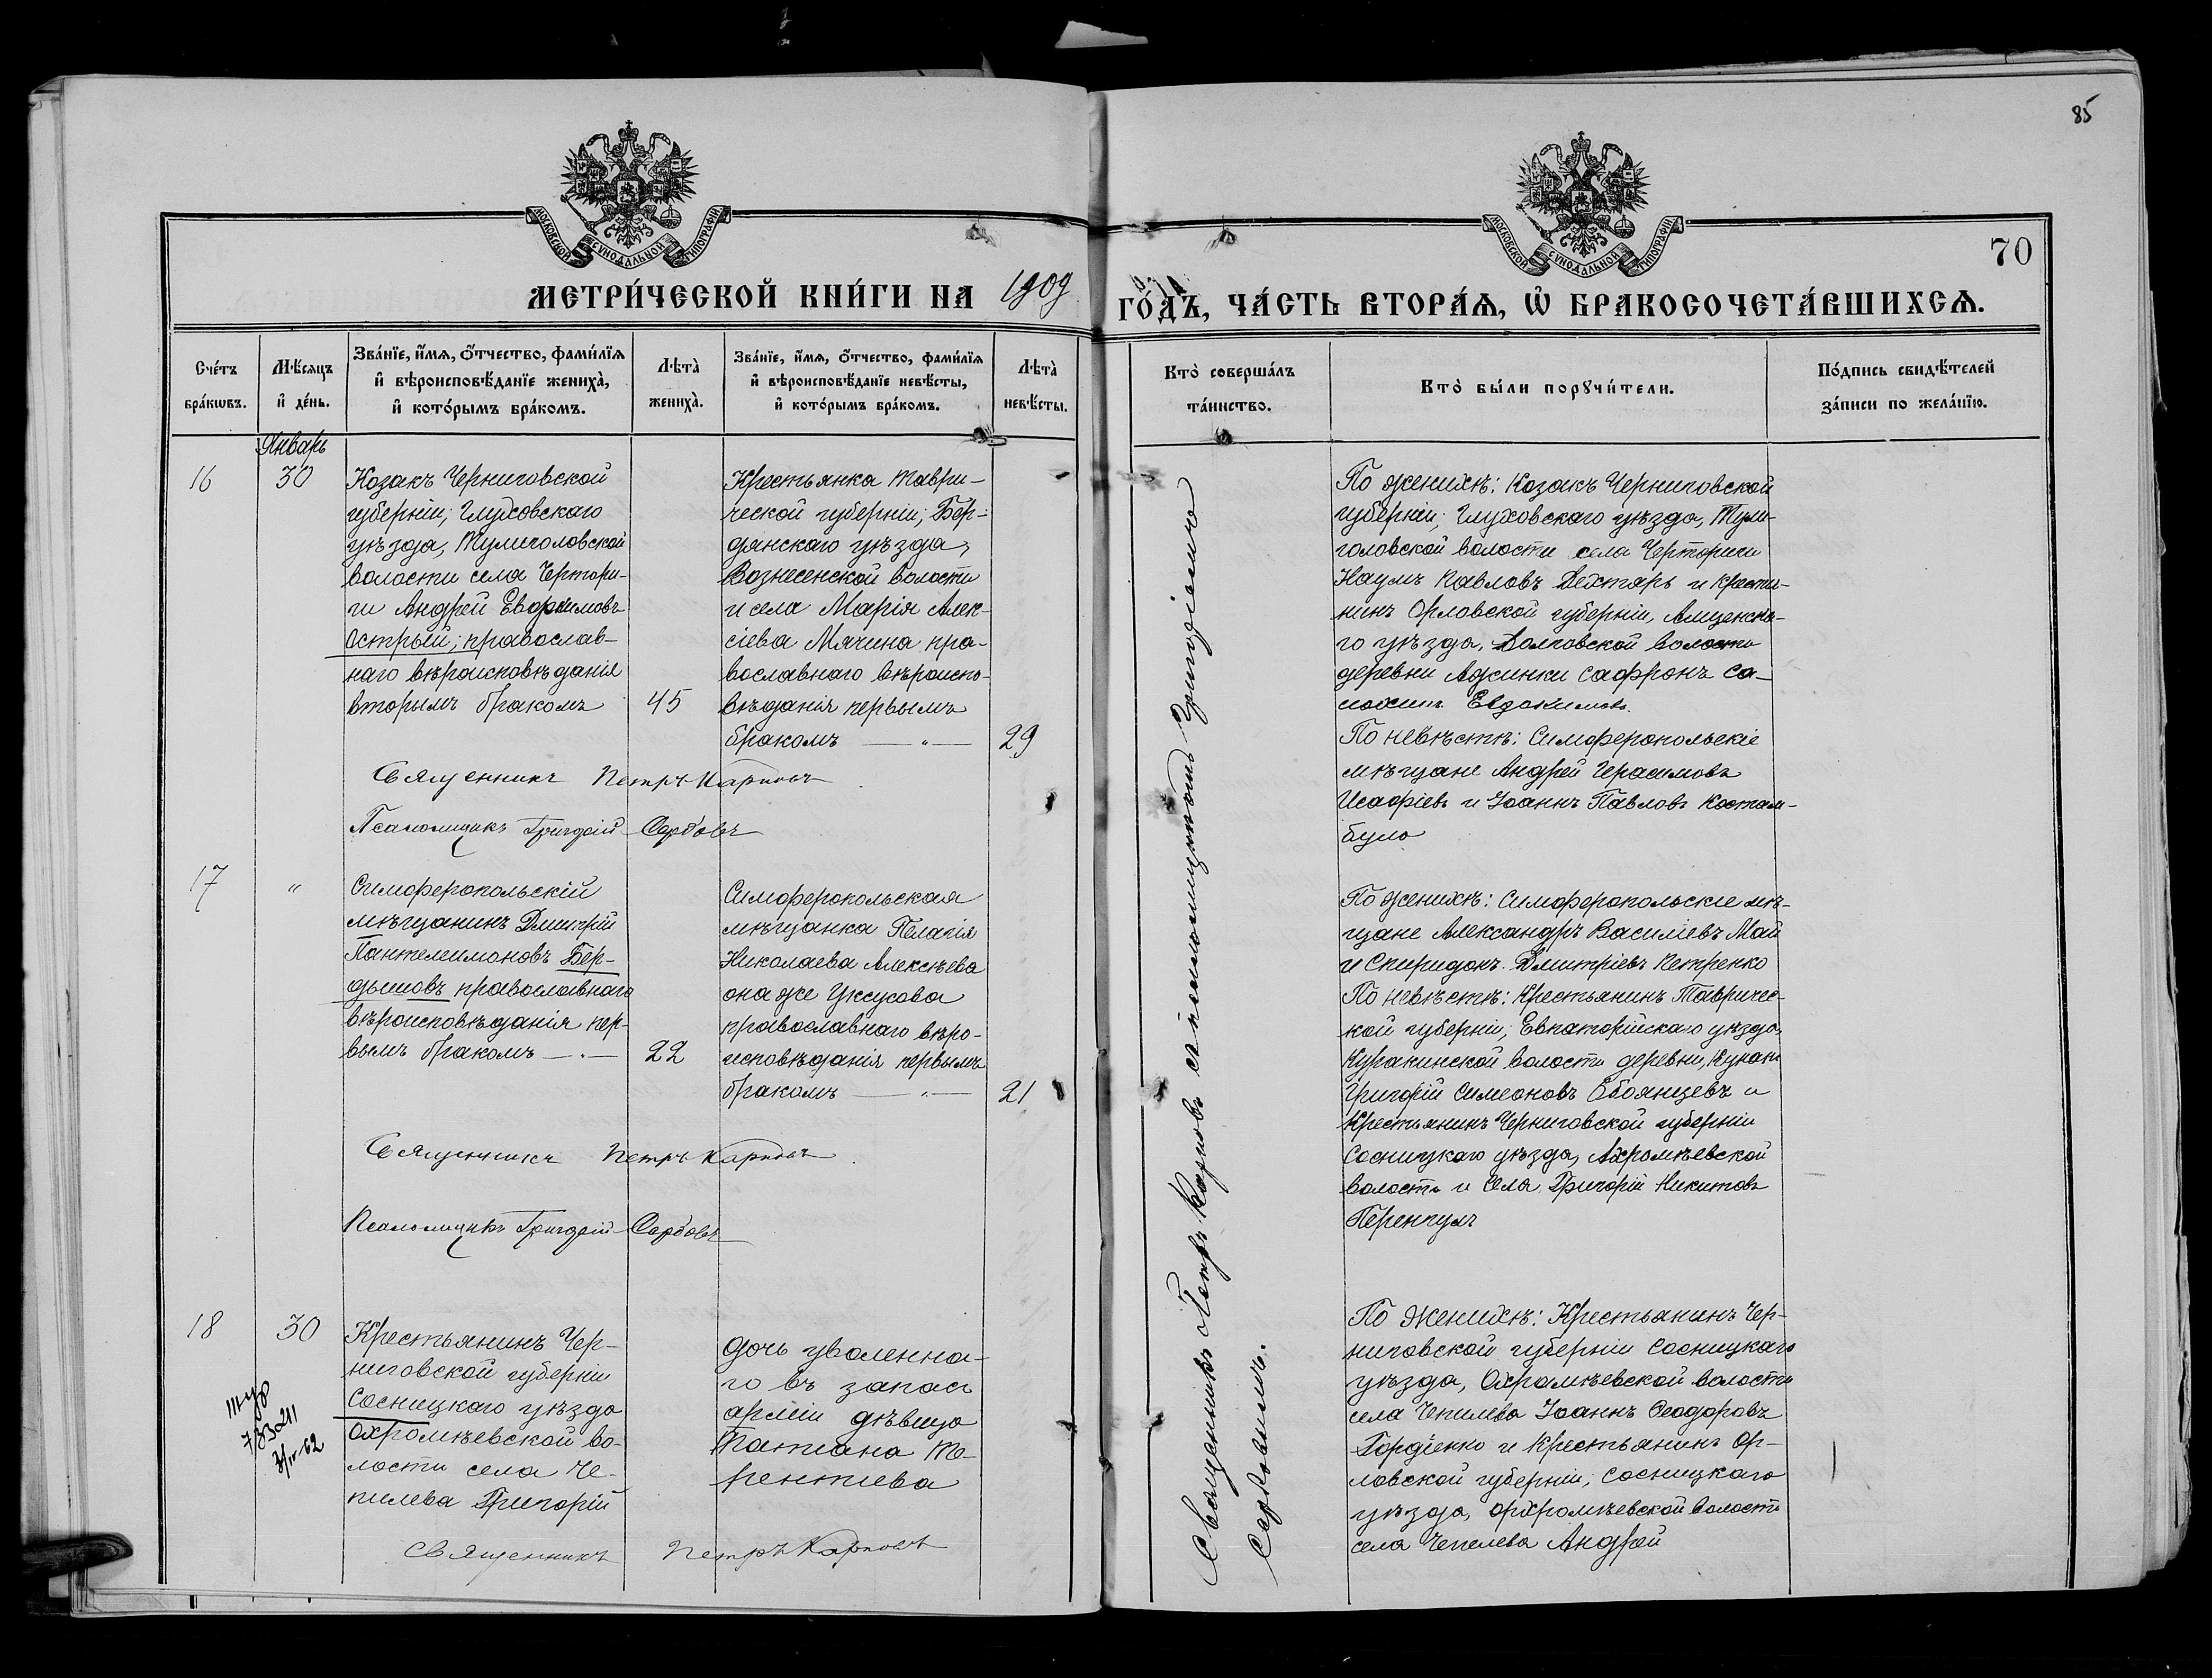 85
МОСКОВСКОЙ СѴНОДАЛЬНОЙ ТИПОГРАФІИ
МОСКОВСКОЙ СѴНОДАЛЬНОЙ ТИПОГРАФІИ
70
МЕТРИ́ЧЕСКОЙ КНИ́ГИ НА 1909 ГО́ДЪ, ЧА́СТЬ ВТОРА́Я, Ѡ БРАКОСОЧЕТА́ВШИХСѦ.
Сче́тъ
бра́кѡвъ.
Мѣ́сяцъ
и҆ де́нь.
Зва́нїе, и҆́мѧ, ѻ҆́тчество, фами́лїѧ
и҆ вѣроисповѣ́данїе жениха̀,
и҆ кото́рымъ бра́комъ.
Лѣта̀
жениха̀.
Зва́нїе, и҆́мѧ, ѻ҆́тчество, фами́лїѧ
и҆ вѣроисповѣ́данїе невѣ́сты,
и҆ кото́рымъ бра́комъ.
Лѣта̀
невѣ́сты.
Кто̀ соверша́лъ
та́инство.
Кто̀ бы́ли порꙋчи́тели.
По́дпись свидѣ́телей
за́писи по жела́нїю.
Январь
16
30
Козакъ Черниговской
губерніи, Глуховскаго
уѣзда, Тулиголовской
волости села Чертори-
ги Андрей Евфимовъ
Острый, православ-
наго вѣроисповѣданія
вторымъ бракомъ
45
Крестьянка Таври-
ческой губерніи, Бер-
дянскаго уѣзда,
Вознесенской волости
и села Марія Алек-
сіева Мячина пра-
вославнаго вѣроиспо-
вѣданія первымъ
бракомъ — „ —
29
Священникъ Петръ Карповъ
Псаломщикъ Григорій Сербовъ
По женихѣ: Козакъ Черниговской
губерніи, Глуховскаго уѣзда, Тули-
головской волости села Черториги
Наумъ Павловъ Дехтярь и крестья-
нинъ Орловской губерніи,
го уѣзда, волости
деревни Сафронъ
Евдокимовъ.
По невѣстѣ: Симферопольскіе
мѣщане Андрей Герасимовъ
и Іоаннъ Павловъ Костам-
було
17
„
Симферопольскій
мѣщанинъ Дмитрій
Пантелеимоновъ Бер-
дышовъ православнаго
вѣроисповѣданія пер-
вымъ бракомъ — „ —
22
Симферопольская
мѣщанка Пелагія
Николаева Алексѣева
она же Уксусова
православнаго вѣро-
исповѣданія первымъ
бракомъ — „ —
21
Священникъ Петръ Карповъ
Псаломщикъ Григорій Сербовъ
По женихѣ: Симферопольскіе мѣ-
щане Александръ Василіевъ Май
и Спиридонъ Дмитріевъ Петренко
По невѣстѣ: Крестьянинъ Тавричес-
кой губерніи, Евпаторійскаго уѣзда,
Куракинской волости деревни
Григорій Симеоновъ Обоянцевъ и
Крестьянинъ Черниговской губерніи
Сосницкаго уѣзда, Ахромѣевской
волости и села Григорій Никитовъ
18
30
Крестьянинъ Чер-
ниговской губерніи
Сосницкаго уѣзда
Охромѣевской во-
лости села Че-
пилева Григорій
дочь уволенна-
го въ запасъ
арміи дѣвица
Татіана Те-
рентіева
Священникъ Петръ Карповъ
По женихѣ: Крестьянинъ Чер-
ниговской губерніи Сосницкаго
уѣзда, Охромѣевской волости
села Чепилева Іоаннъ Ѳеодоровъ
Гордіенко и крестьянинъ Ор-
ловской губерніи, Сосницкаго
уѣзда, Орхромѣевской волости
села Чепелева Андрей
Священникъ Петръ Карповъ съ псаломщикомъ Григоріемъ
Сербовымъ.